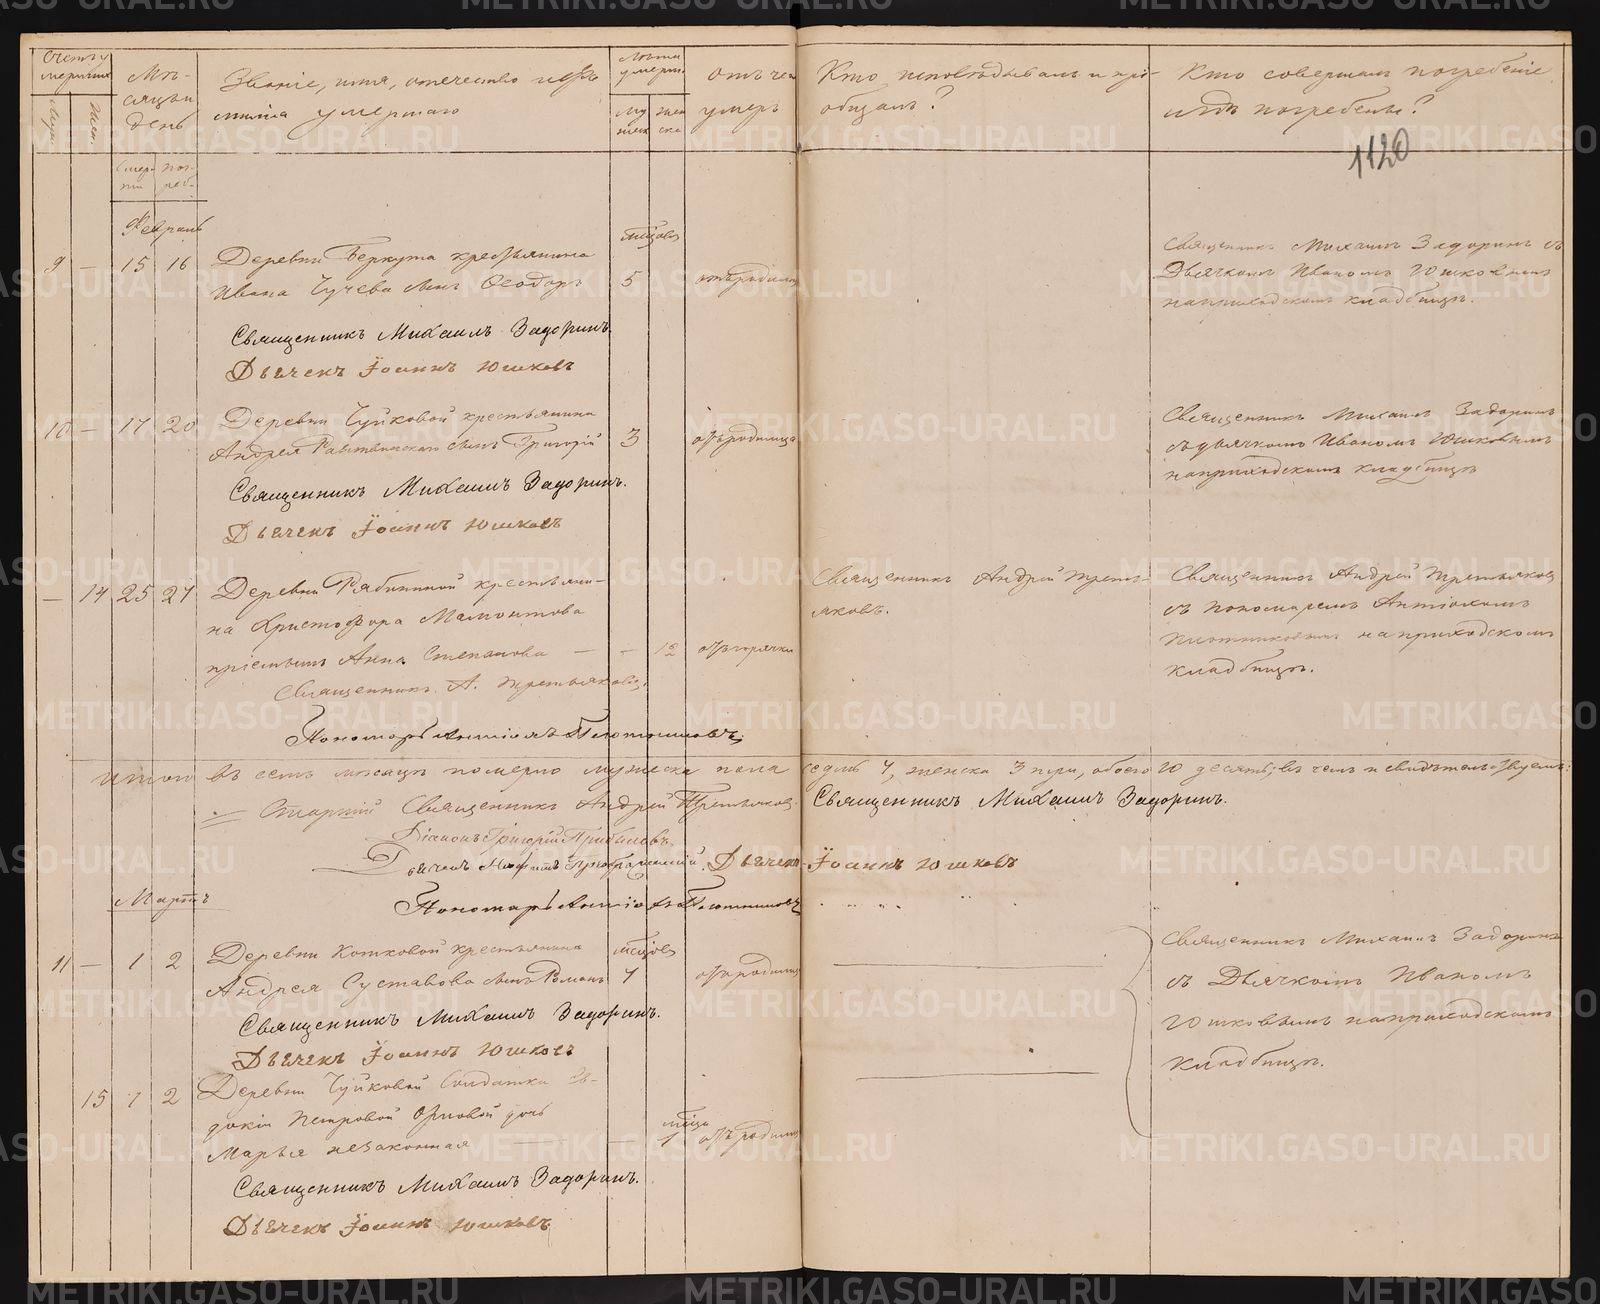 Счетъ умершихъ
Муж.
Жен.
Мѣсяцъ и день
Смерти
погреб.
Званіе, имя, отечество и фамилія умершаго
Лѣта умерш.
мужеск
женска
отъ чего умеръ
Кто исповѣдывалъ и пріобщалъ?
Кто совершалъ погребеніе
и гдѣ погребены?
1120
Февраль
9 — 15 16
Деревни Беркута крестьянина
Ивана Чучева сынъ Ѳеодоръ
мѣсяцов
5
отъ родимца
Священникъ Михаилъ Задоринъ съ
Дьячкомъ Иваномъ Юшковымъ
на приходскомъ кладбищѣ.
Священникъ Михаилъ Задоринъ.
Дьячекъ Іоаннъ Юшковъ
10 — 17 20
Деревни Чуйковой крестьянина
Андрея сынъ Григорій
3
отъ родимца
Священникъ Михаилъ Задоринъ
съ дьячкомъ Иваномъ Юшковымъ
на приходскомъ кладбищѣ
Священникъ Михаилъ Задоринъ.
Дьячекъ Іоаннъ Юшковъ
— 14 25 27
Деревни Рябининой крестьяни-
на Христофора Мамонтова
пріемышъ Анна Степанова — - 12
отъ горячки
Священникъ Андрей Треть-
яковъ.
Священникъ Андрей Третьяков
съ пономаремъ Антіохомъ
Плотниковымъ на приходскомъ
кладбищѣ.
Священникъ А. Третьяковъ.
Пономарь Антіохъ Плотниковъ
Итого въ семъ мѣсяцѣ померло мужеска пола седмь 7, женска 3 три, обоего 10 десять; въ чемъ и свидѣтельствуемъ:
Старшій Священникъ Андрей Третьяковъ. Священникъ Михаилъ Задоринъ.
Діаконъ Григорій Прибыловъ.
Дьячекъ Преображенскій. Дьячекъ Іоаннъ Юшковъ
Пономарь Антіохъ Плотниковъ
Мартъ
11 — 1 2
Деревни Котковой крестьянина
Андрея Суставова сынъ Романъ
мѣсяцов
7
отъ родимца
Священникъ Михаилъ Задоринъ
съ Дьячкомъ Иваномъ
Юшковымъ на приходскомъ
кладбищѣ.
Священникъ Михаилъ Задоринъ.
Дьячекъ Іоаннъ Юшковъ
15 1 2
Деревни Чуйковой Солдатки Ев-
докіи Петровой Орловой дочь
Марья незаконная
мѣсяца
1
отъ родимца
Священникъ Михаилъ Задоринъ.
Дьячекъ Іоаннъ Юшковъ
METRIKI.GASO-URAL.RU